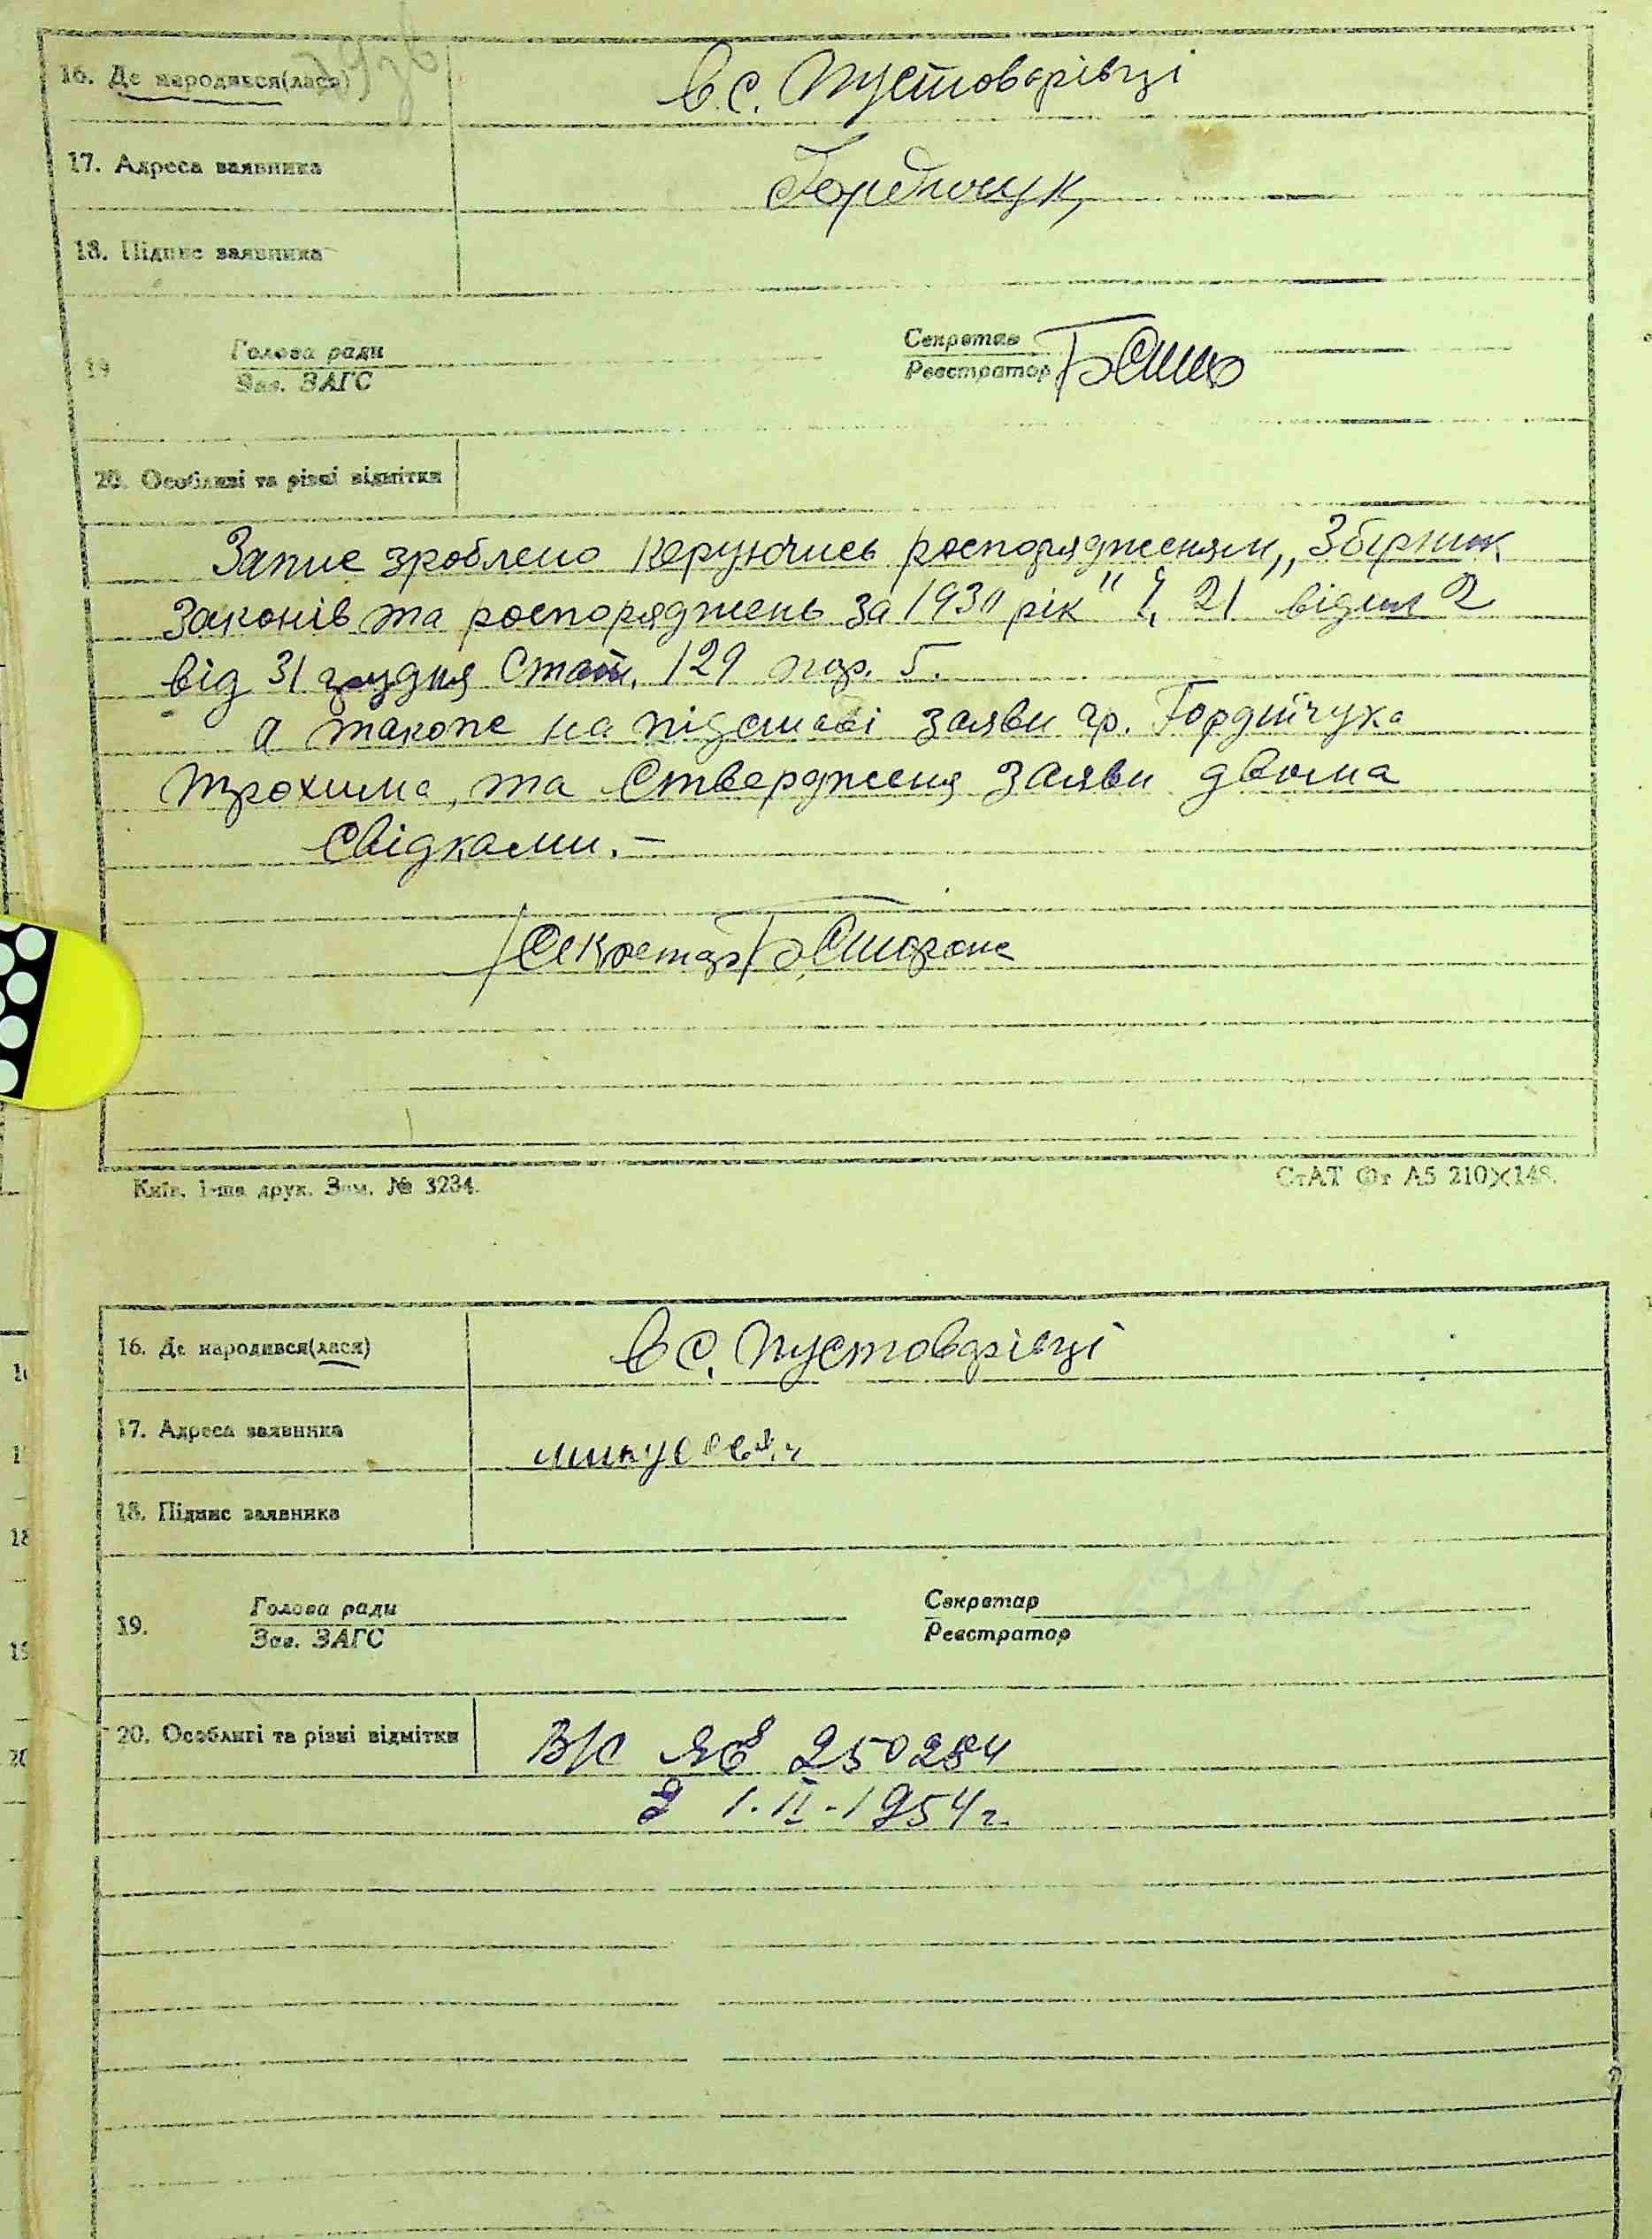 16. Де народився(лася) в с. Пустоварівці
17. Адреса заявника Гордійчук,
18. Підпис заявника
19 Голова ради Секретар
Зав. ЗАГС Реєстратор
20. Особливі та різні відмітки
Запис зроблено керуючись роспорядженням „Збірник
Законів та роспоряджень за 1930 рік" Ч. 21 відділ 2
від 31 грудня Стат. 129
а також на підставі заяви гр. Гордійчука
Трохима, та Ствердженя заяви двома
Свідками.-
Секретар Б. Сторож
Київ. 1-ша друк. Зам. № 3234.
СтАТ Фт А5 210×148.
16. Де народився(лася) в с. Пустоварівці
17. Адреса заявника
18. Підпис заявника
19. Голова ради Секретар
Зав. ЗАГС Реєстратор
20. Особливі та різні відмітки В/С ЯЄ 250284
1.II-1954 г.